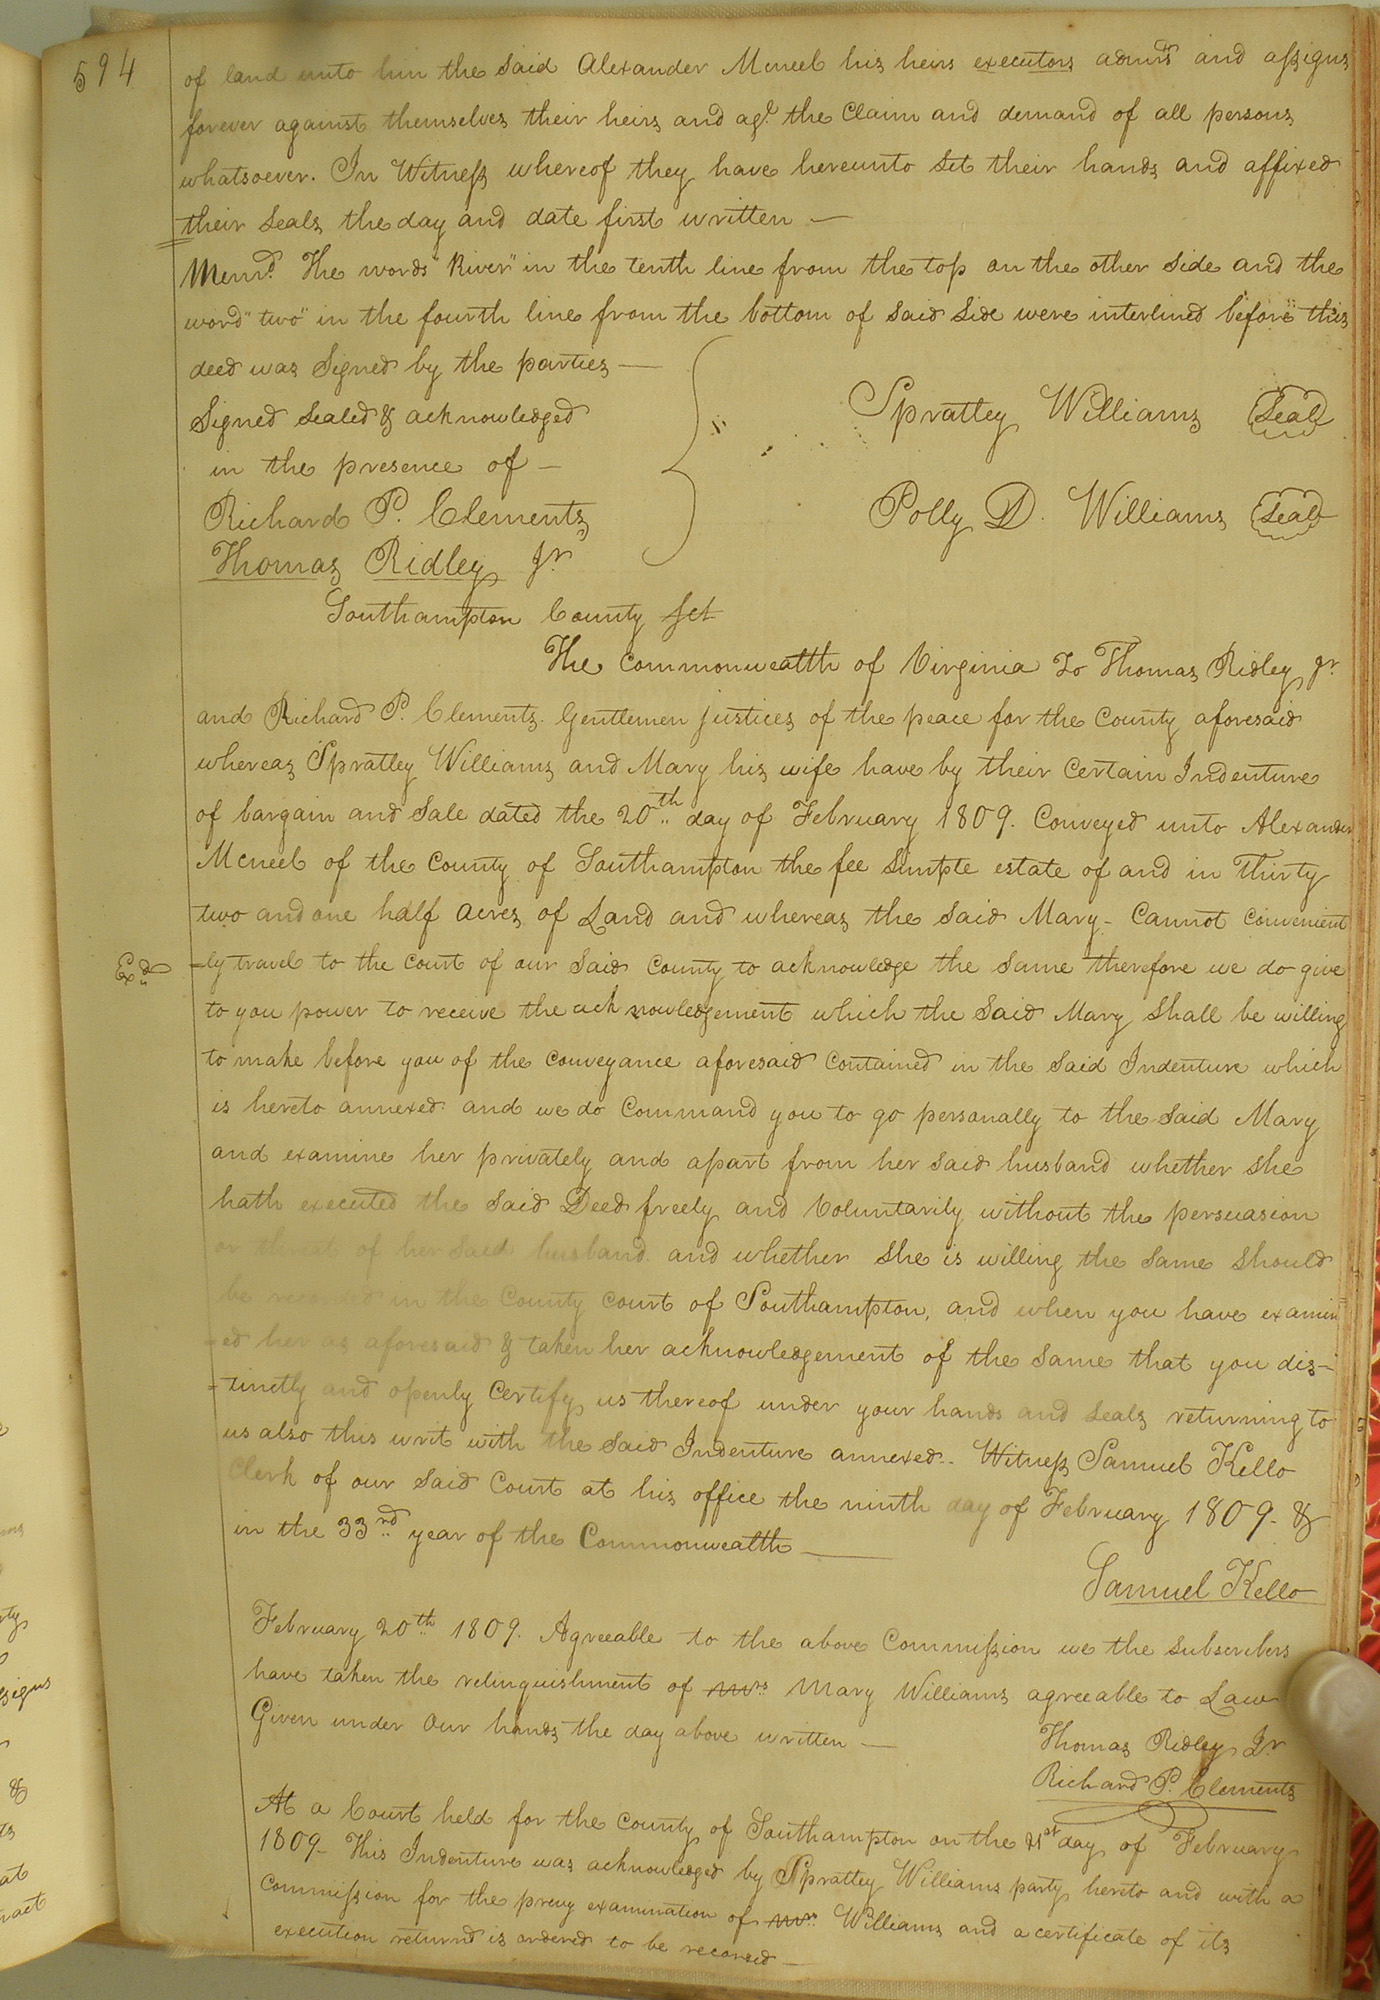 594
of land unto him the said Alexander Mcneel his heirs executors admrs and assigns
forever against themselves their heirs and agt. the Claim and demand of all persons
whatsoever. In Witness whereof they have hereunto set their hands and affixed
their seals the day and date first written —
Memd. The words "River" in the tenth line from the top on the other side and the
word "two" in the fourth line from the bottom of said side were interlined before this
deed was signed by the parties —
Signed sealed & acknowledged
in the presence of —
Spratley Williams Seal
Richard P. Clements
Polly D. Williams Seal
Thomas Ridley Jr
Southampton County Sct
The Commonwealth of Virginia To Thomas Ridley Jr.
and Richard P. Clements. Gentlemen justices of the peace for the County aforesaid
whereas Spratley Williams and Mary his wife have by their Certain Indenture
of bargain and sale dated the 20th day of February 1809. Conveyed unto Alexander
Mcneel of the County of Southampton the fee simple estate of and in Thirty
two and one half acres of Land and whereas the said Mary - Cannot convenient
Exd
=ly travel to the court of our said County to acknowledge the same therefore we do give
to you power to receive the acknowledgement which the said Mary shall be willing
to make before you of the conveyance aforesaid contained in the said Indenture which
is hereto annexed and we do Command you to go personally to the said Mary
and examine her privately and apart from her said husband whether she
hath executed the said Deed freely and Voluntarily without the persuasion
or threat of her said husband. and whether she is willing the same should
be recorded in the County court of Southampton, and when you have examin
=ed her as aforesaid & taken her acknowledgement of the same that you dis=
=tinctly and openly certify us thereof under your hands and seals returning to
us also this writ with the said Indenture annexed.. Witness Samuel Kello
Clerk of our said Court at his office the ninth day of February 1809. &
in the 33rd year of the Commonwealth —
Samuel Kello
February 20th 1809. Agreeable to the above Commission we the subscribers
have taken the relinquishment of Mrs Mary Williams agreeable to Law
Given under our hands the day above written —
Thomas Ridley Jr
Richard P. Clements
At a Court held for the County of Southampton on the 21st day of February
1809 - This Indenture was acknowledged by Spratley Williams party hereto and with a
Commission for the previy examination of Mrs. Williams and a certificate of its
execution returnd is ordered to be recorded —